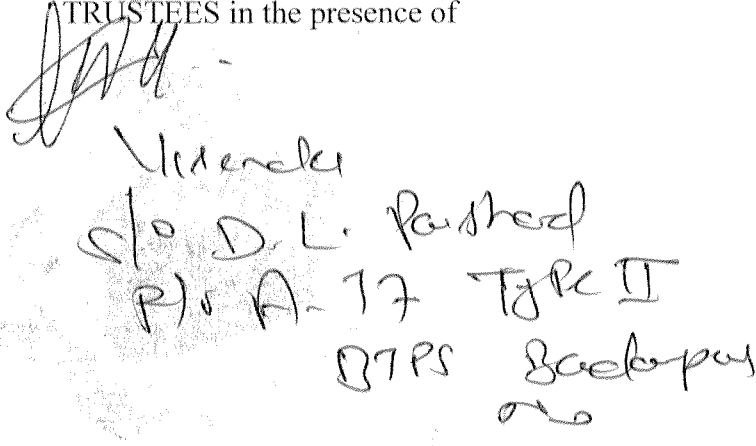 TRUSTEES in the presence of
Virender
S/o D. L. Parshad
R/o A-17 Type II
BTPS Badarpur